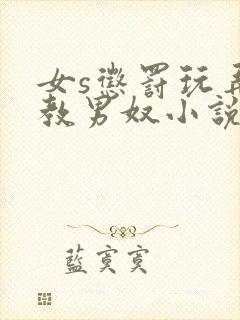 女s懲罰玩弄
教男奴小說
藍寞寞